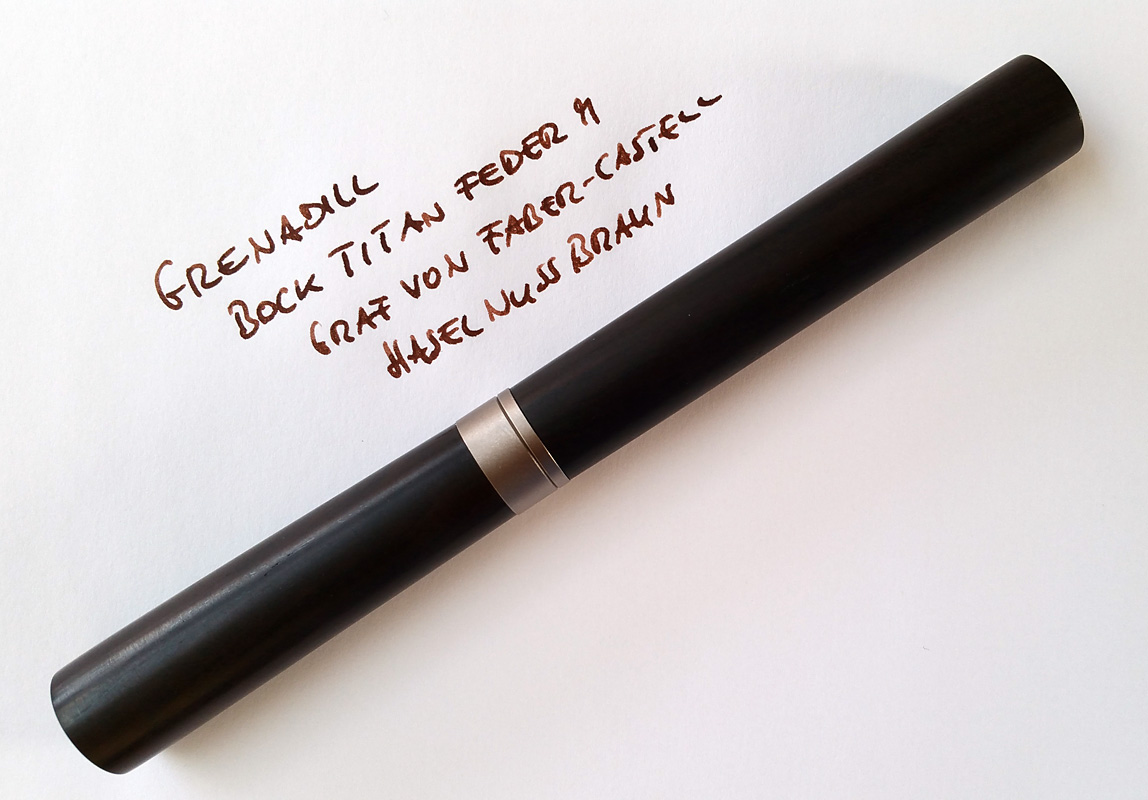 GRENADILL
BOCK TITAN FEDER M
GRAF VON FABER-CASTELL
HASELNUSS BRAUN